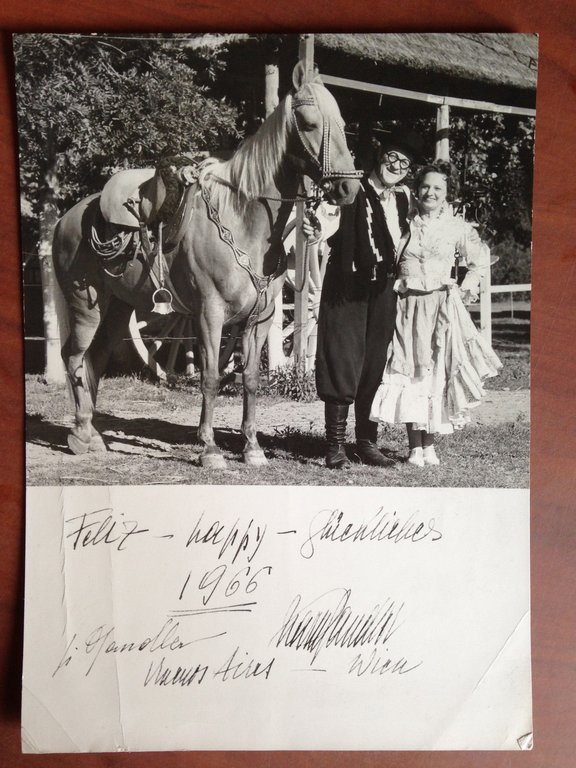 Feliz - happy - glückliches
1966
Buenos Aires - Wien